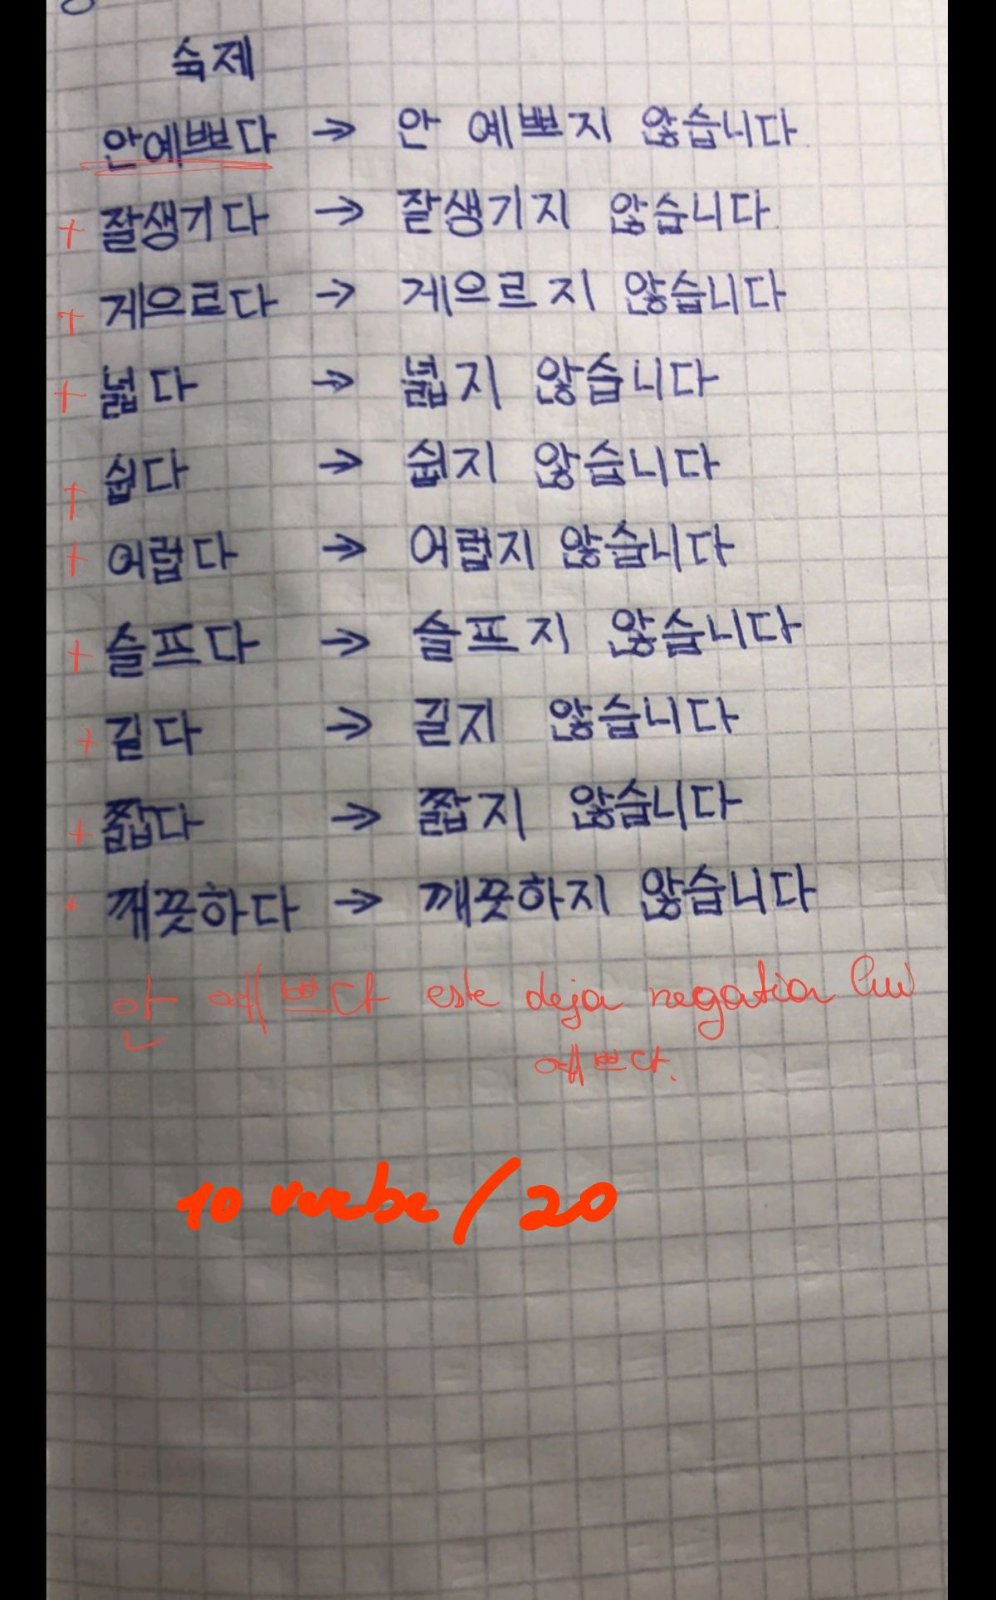 숙제
안예쁘다 → 안 예쁘지 않습니다
+ 잘생기다 → 잘생기지 않습니다
+ 게으르다 → 게으르지 않습니다
+ 넓다 → 넓지 않습니다
+ 쉽다 → 쉽지 않습니다
+ 어렵다 → 어렵지 않습니다
+ 슬프다 → 슬프지 않습니다
+ 길다 → 길지 않습니다
+ 짧다 → 짧지 않습니다
깨끗하다 → 깨끗하지 않습니다
안 예쁘다 este deja negatia lui
예쁘다.
10 verbe / 20